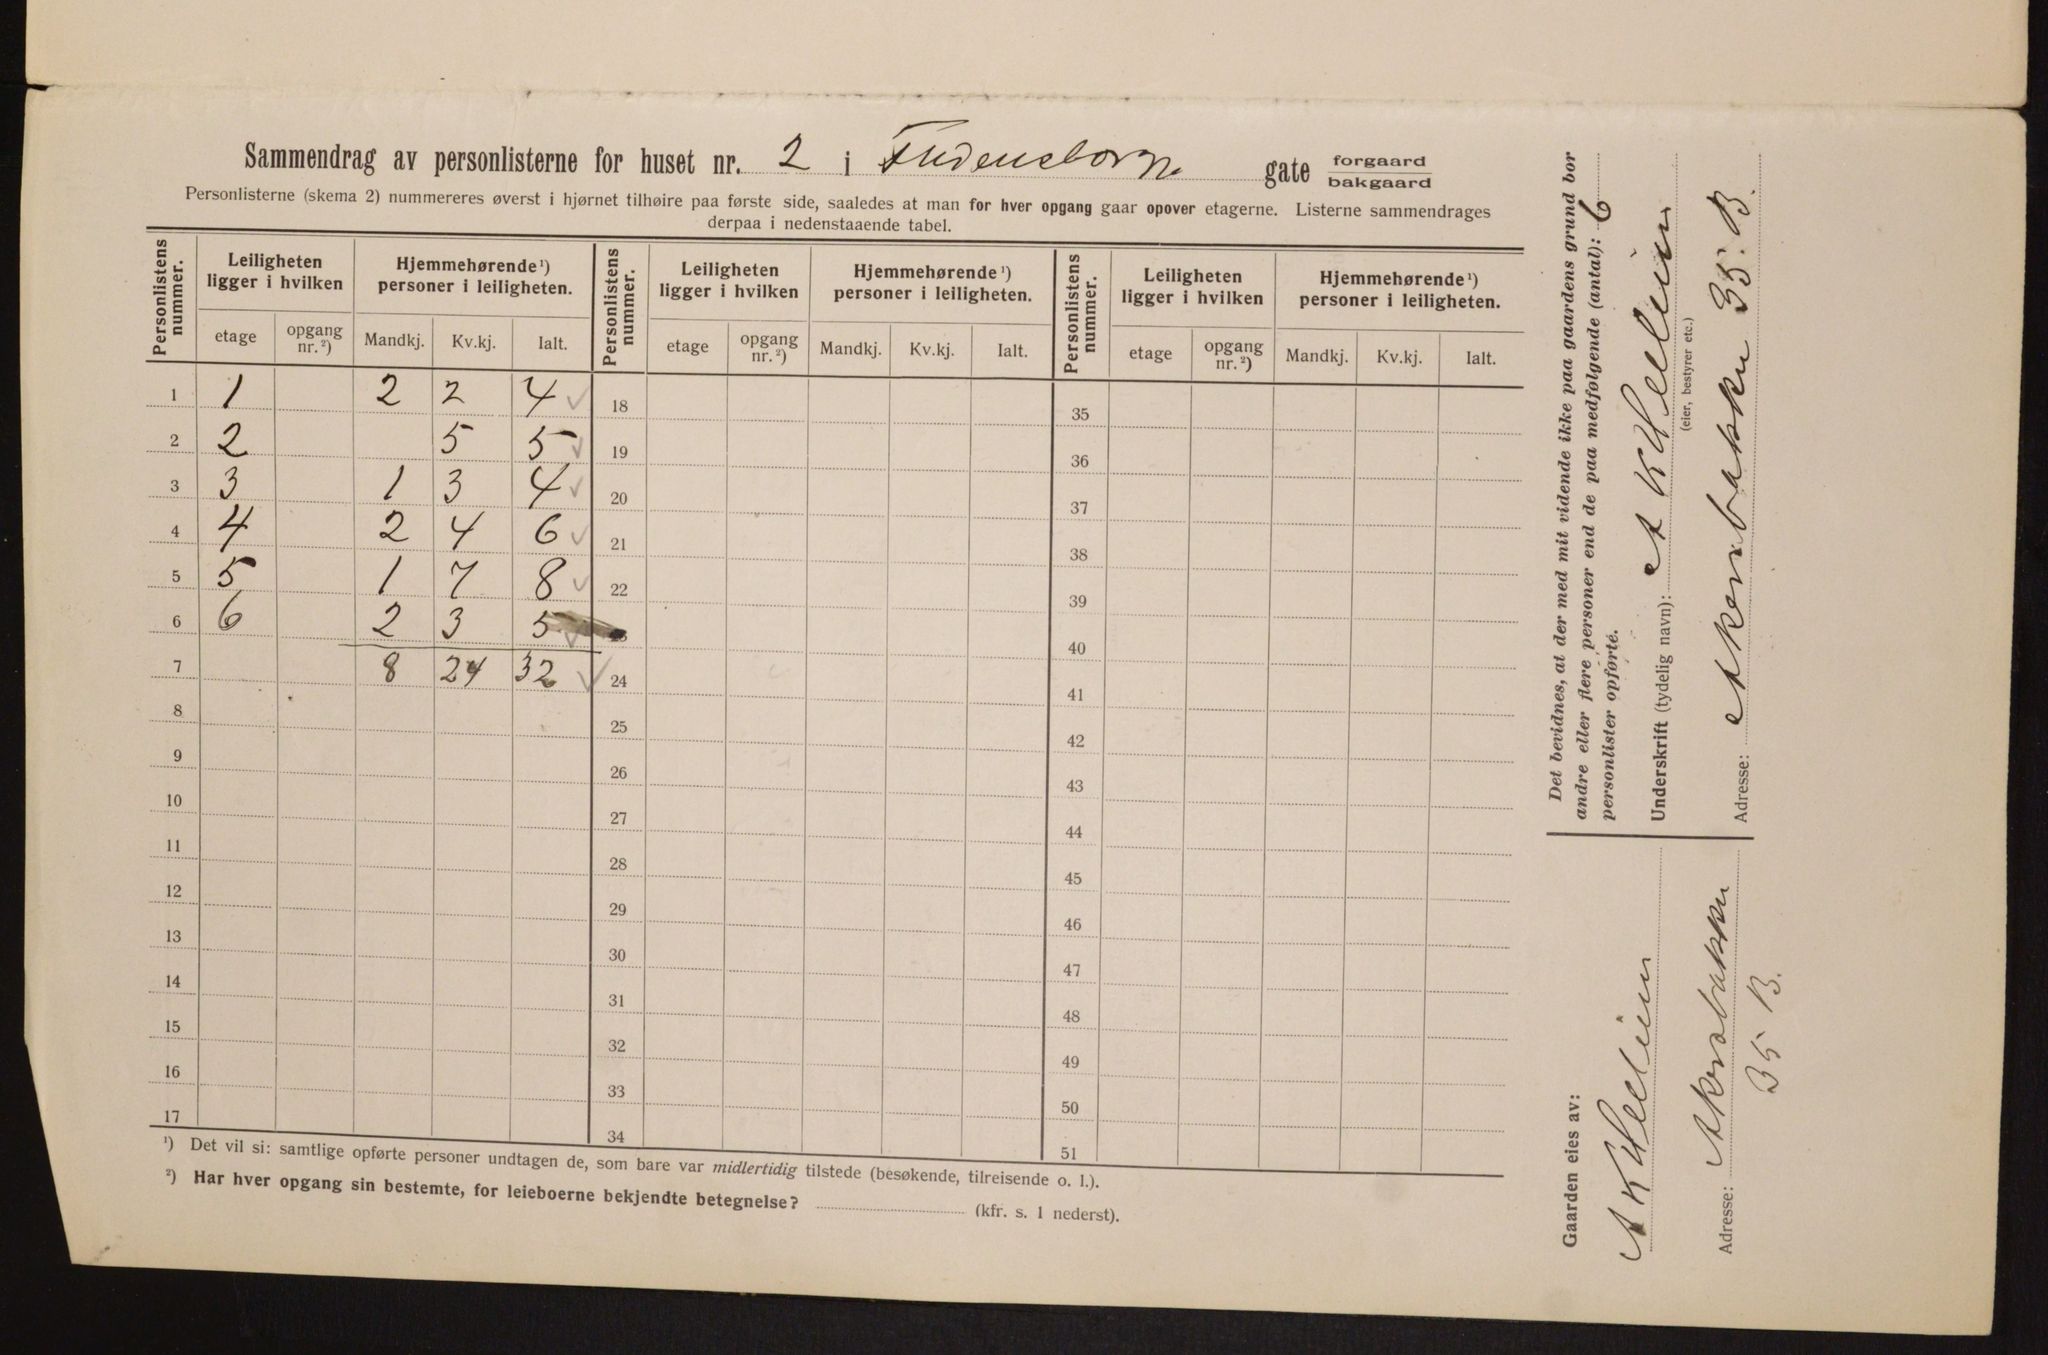 Sammendrag av personlisterne for huset nr. 2 i Fredensborg gate forgaard bakgaard
Personlisterne (skema 2) nummereres øverst i hjørnet tilhøire paa første side, saaledes at man for hver opgang gaar opover etagerne. Listerne sammendrages
derpaa i nedenstaaende tabel.
Personlistens nummer. Leiligheten ligger i hvilken Hjemmehørende ¹) personer i leiligheten. Personlistens nummer. Leiligheten ligger i hvilken Hjemmehørende ¹) personer i leiligheten. Personlistens nummer. Leiligheten ligger i hvilken Hjemmehørende ¹) personer i leiligheten.
etage opgang nr. ²) Mandkj. Kv.kj. Ialt. etage opgang nr. ²) Mandkj. Kv.kj. Ialt. etage opgang nr. ²) Mandkj. Kv.kj. Ialt.
1 1 2 2 4 ✓ 18 35
2 2 5 5 ✓ 19 36
3 3 1 3 4 ✓ 20 37
4 4 2 4 6 ✓ 21 38
5 5 1 7 8 ✓ 22 39
6 6 2 3 5 ✓ 40
7 8 24 32 ✓ 24 41
8 25 42
9 26 43
10 27 44
11 28 45
12 29 46
13 30 47
14 31 48
15 32 49
16 33 50
17 34 51
¹) Det vil si: samtlige opførte personer undtagen de, som bare var midlertidig tilstede (besøkende, tilreisende o. l.).
²) Har hver opgang sin bestemte, for leieboerne bekjendte betegnelse? (kfr. s. 1 nederst).
Det bevidnes, at der med mit vidende ikke paa gaardens grund bor
andre eller flere personer end de paa medfølgende (antal): 6
personlister opførte.
Underskrift (tydelig navn): A K
(eier, bestyrer etc.)
Adresse: Akersbakken 35. B.
Gaarden eies av:
A K
Adresse: Akersbakken
35 B.